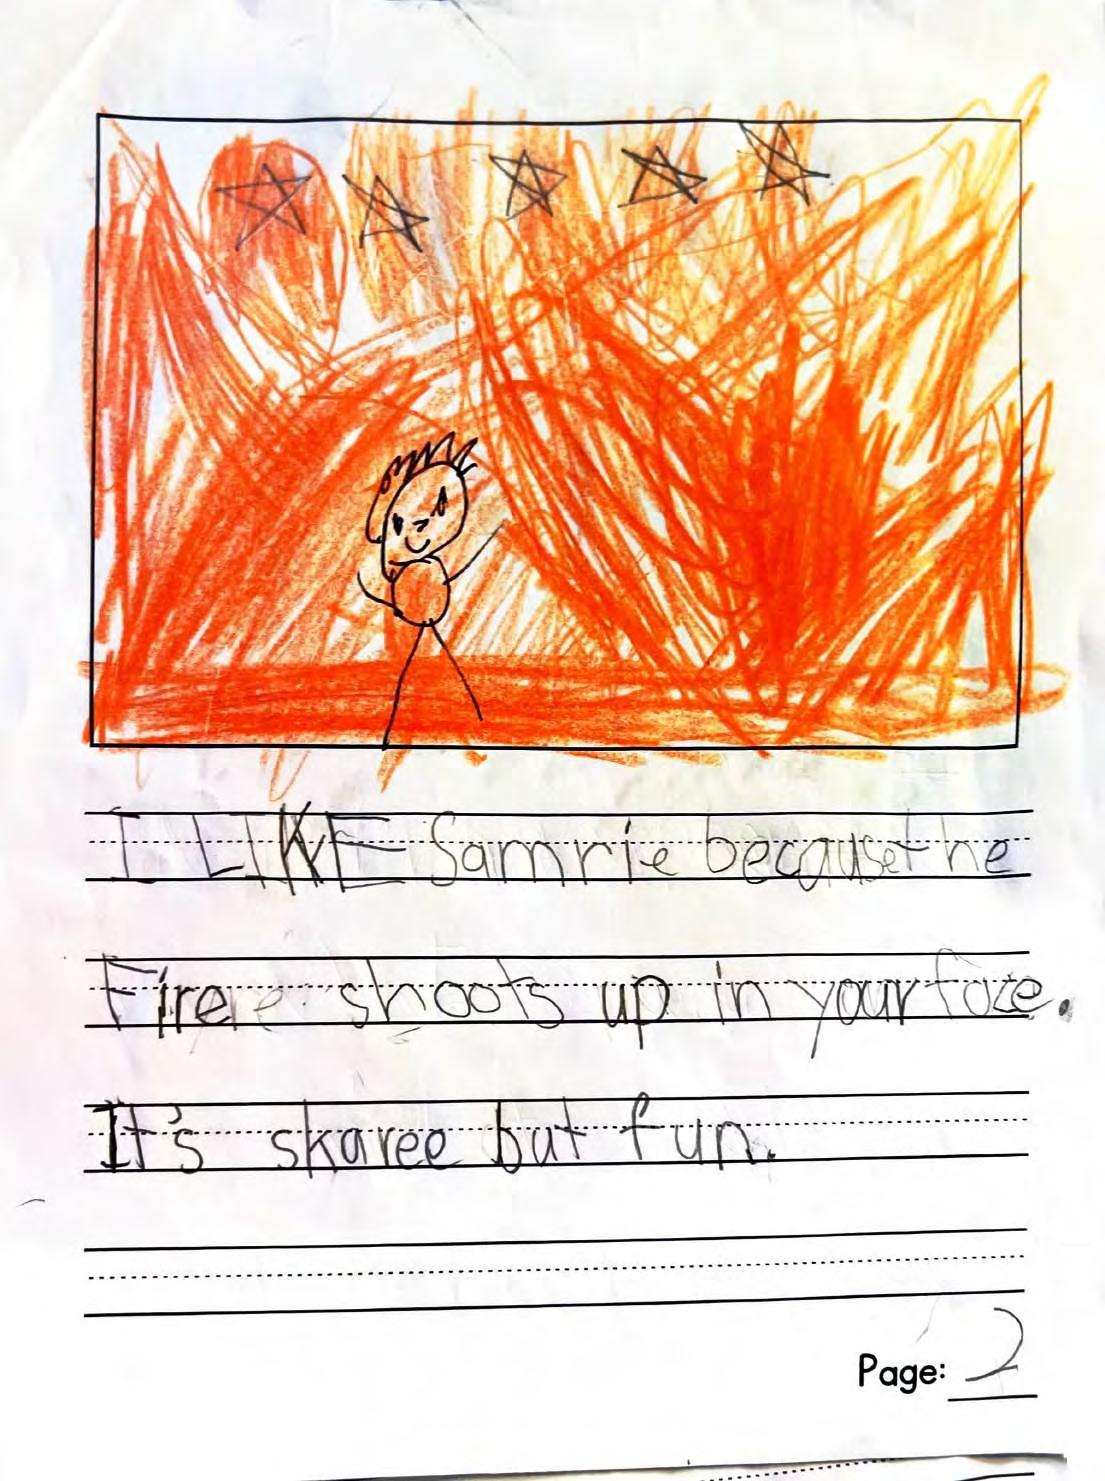 I LIKE Samrie because the
Fire shoots up in your face.
It's skaree but fun.
Page: 2